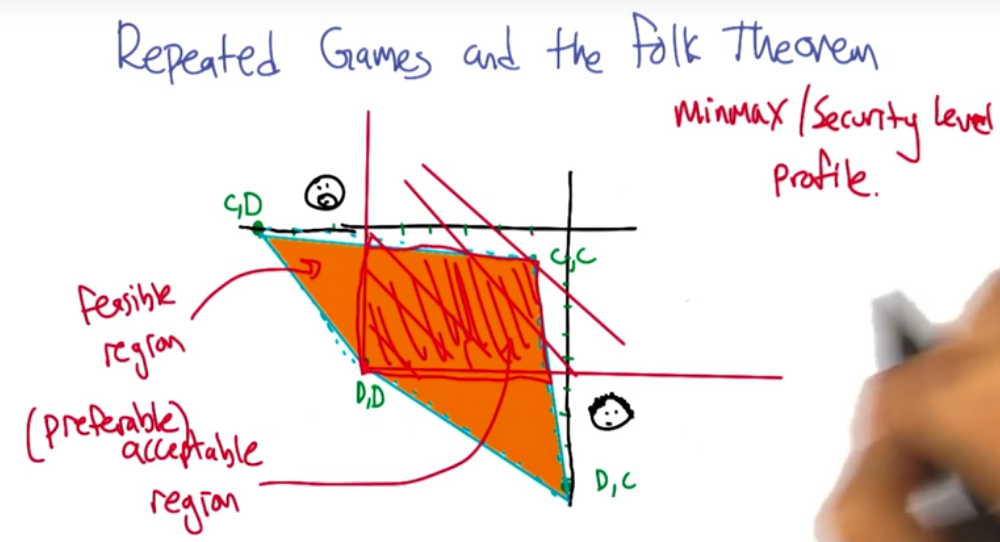 Repeated Games and the Folk Theorem
minmax/Security Level
profile.
C,D
C,C
feasible
region
D,D
(preferable)
acceptable
region
D,C